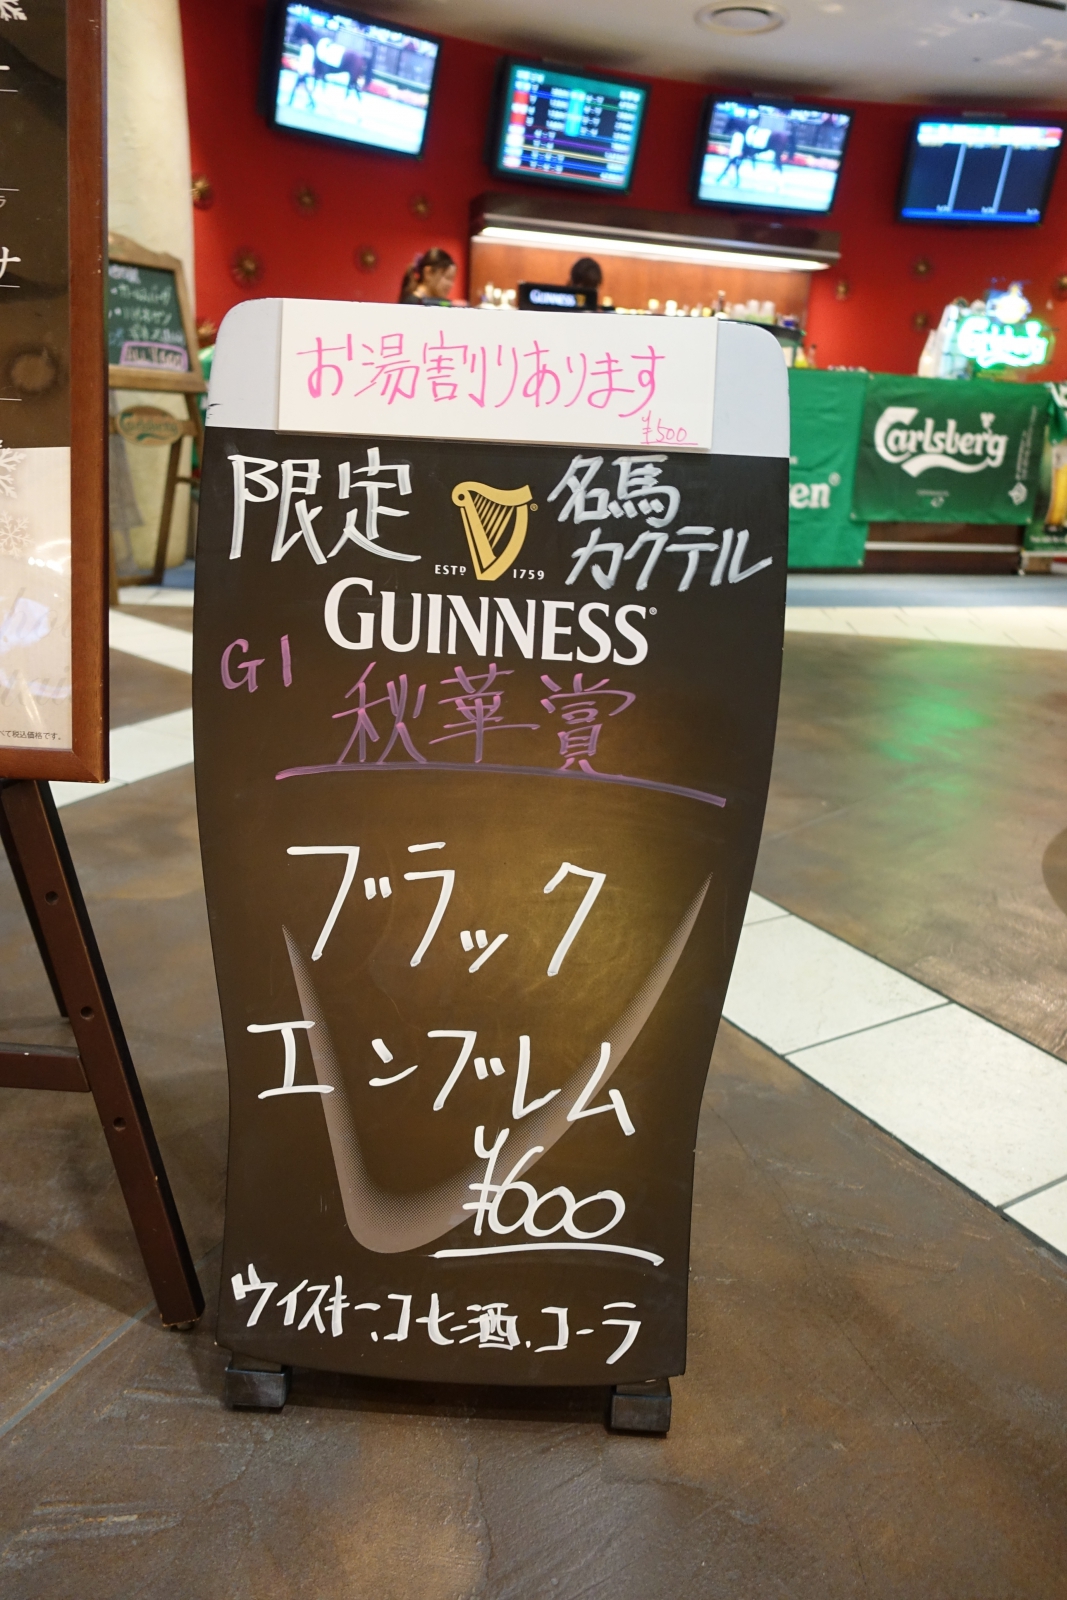 お湯割りあります
¥500
限定
名馬
カクテル
ESTD 1759
GUINNESS
G1
秋華賞
ブラック
エンブレム
¥600
ウイスキー、コーヒー酒、コーラ
GUINNESS
Carlsberg
Carlsberg
べて税込価格です。